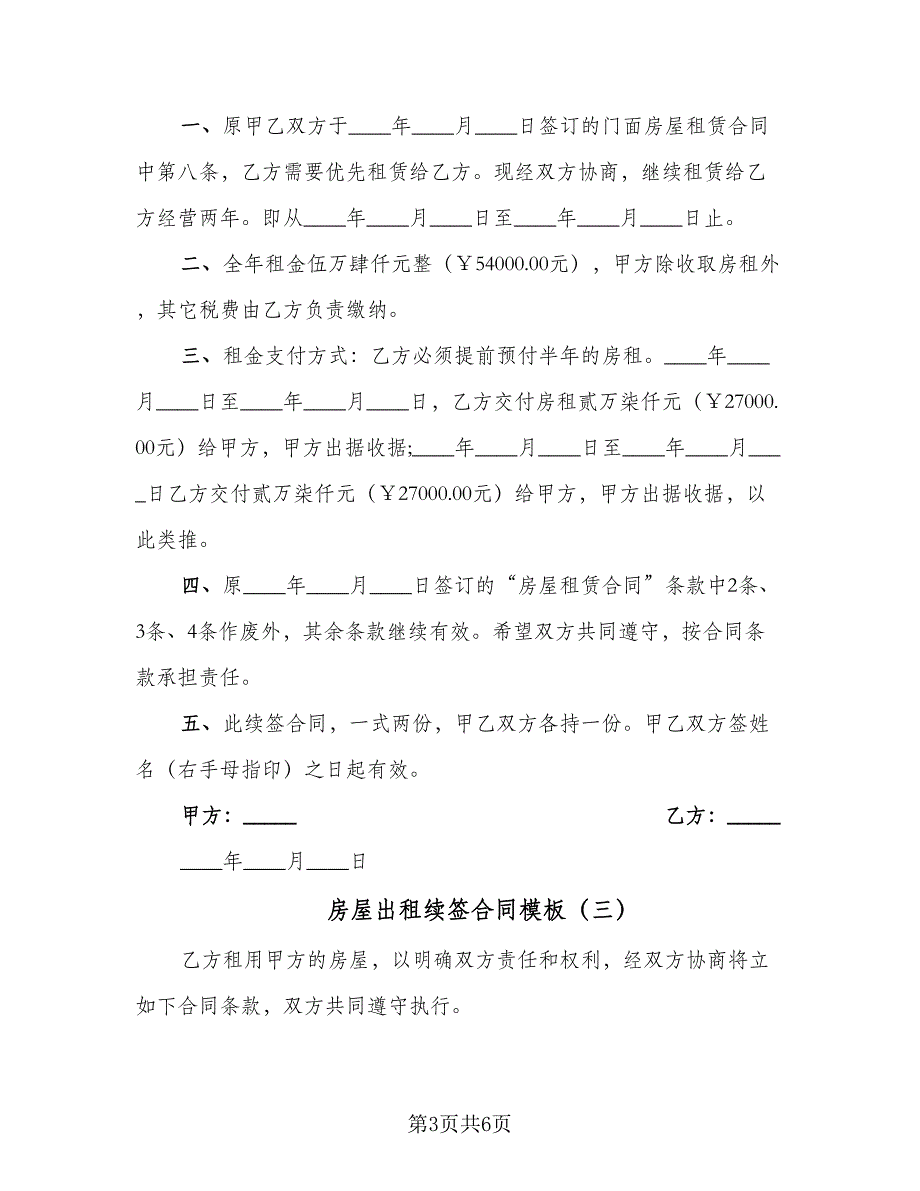 一、原甲乙双方于____年____月____日签订的门面房屋租赁合同
中第八条，乙方需要优先租赁给乙方。现经双方协商，继续租赁给乙
方经营两年。即从____年____月____日至____年____月____日止。
二、全年租金伍万肆仟元整（￥54000.00元），甲方除收取房租外
，其它税费由乙方负责缴纳。
三、租金支付方式：乙方必须提前预付半年的房租。____年____
月____日至____年____月____日，乙方交付房租贰万柒仟元（￥27000.
00元）给甲方，甲方出据收据;____年____月____日至____年____月___
_日乙方交付贰万柒仟元（￥27000.00元）给甲方，甲方出据收据，以
此类推。
四、原____年____月____日签订的“房屋租赁合同”条款中2条、
3条、4条作废外，其余条款继续有效。希望双方共同遵守，按合同条
款承担责任。
五、此续签合同，一式两份，甲乙双方各持一份。甲乙双方签姓
名（右手母指印）之日起有效。
甲方：_____ 乙方：_____
____年____月____日
房屋出租续签合同模板（三）
乙方租用甲方的房屋，以明确双方责任和权利，经双方协商将立
如下合同条款，双方共同遵守执行。
第3页共6页